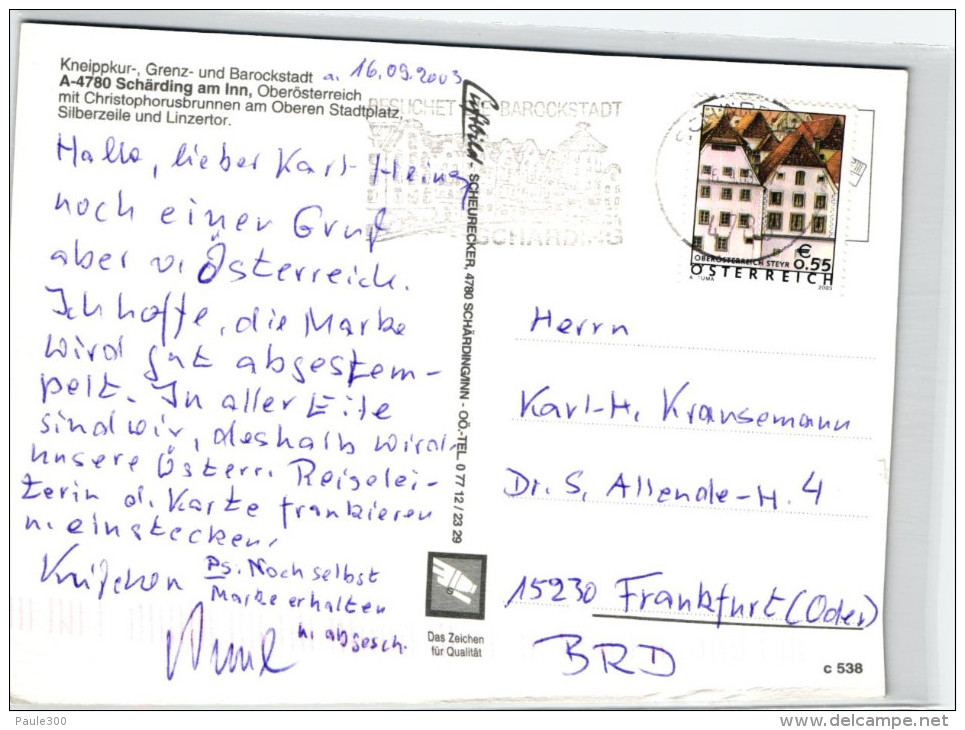 Kneippkur-, Grenz- und Barockstadt
A-4780 Schärding am Inn, Oberösterreich
mit Christophorusbrunnen am Oberen Stadtplatz,
Silberzeile und Linzertor.
a. 16.09.2003
Hallo, lieber Karl-Heinz
noch einer Gruß
aber v. Österreich.
Ich hoffe, die Marke
wird gut abgestem-
pelt. In aller Eile
sind wir, deshalb wird
unsere Österr. Reiselei-
terin d. Karte frankieren
u. einstecken.
PS. Noch selbst
Marke erhalten
u. abgesch.
Luftbild - SCHEURECKER, 4780 SCHÄRDING/INN - OÖ.-TEL. 0 77 12 / 23 29
Das Zeichen
für Qualität
BESUCHET DIE BAROCKSTADT
SCHÄRDING
OBERÖSTERREICH STEYR
€ 0.55
A. TUMA
2003
ÖSTERREICH
Herrn
Karl-H. Kransemann
Dr. S. Allende-H. 4
15230 Frankfurt (Oder)
BRD
c 538
Paule300
www.delcampe.net